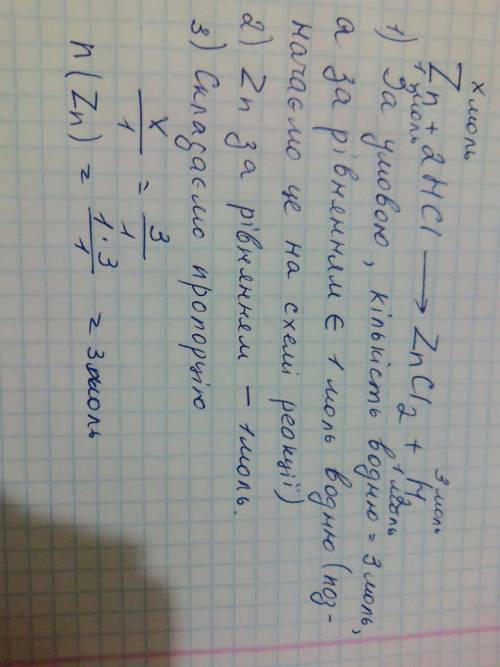 х моль 3 моль
Zn + 2HCl → ZnCl2 + H2
1 моль 1 моль
1) За умовою, кількість водню = 3 моль,
а за рівнянням є 1 моль водню (поз-
начаємо це на схемі реакції)
2) Zn за рівнянням – 1 моль.
3) Складаємо пропорцію
x/1 = 3/1
n(Zn) = 1·3/1 = 3 моль